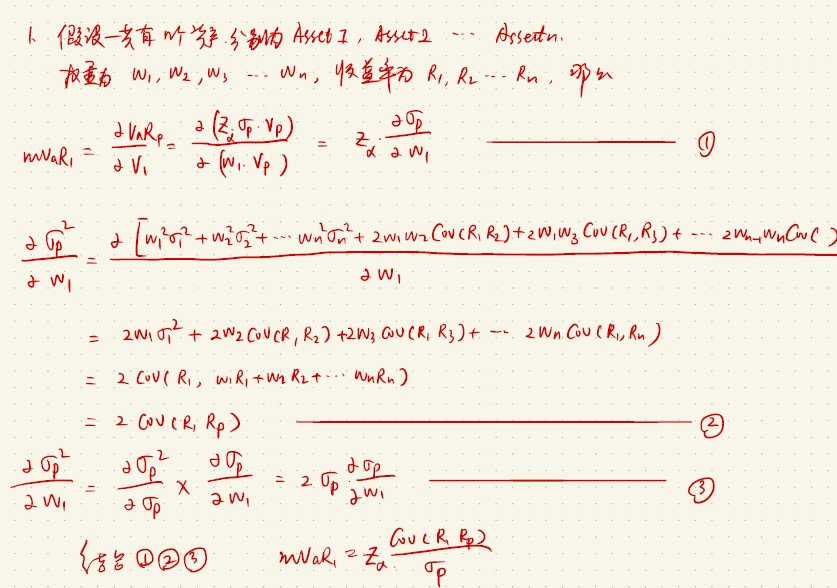 1. 假设一共有 n个资产 分别为 Asset 1, Asset 2 ⋯ Asset n.
权重为 W₁, W₂, W₃ ⋯ Wₙ, 收益率为 R₁, R₂ ⋯ Rₙ, 那么
mVaR₁ = ∂VaRₚ/∂V₁ = ∂(Zα σₚ·Vₚ)/∂(W₁·Vₚ) = Zα·∂σₚ/∂W₁ ①
∂σₚ²/∂W₁ = ∂[W₁²σ₁²+W₂²σ₂²+⋯Wₙ²σₙ²+2W₁W₂Cov(R₁R₂)+2W₁W₃Cov(R₁,R₃)+⋯2Wₙ₋₁WₙCov( )/∂W₁
= 2W₁σ₁²+2W₂Cov(R₁R₂)+2W₃Cov(R₁R₃)+⋯2WₙCov(R₁,Rₙ)
= 2Cov(R₁, W₁R₁+W₂R₂+⋯WₙRₙ)
= 2Cov(R₁Rₚ) ②
∂σₚ²/∂W₁ = ∂σₚ²/∂σₚ × ∂σₚ/∂W₁ = 2σₚ·∂σₚ/∂W₁ ③
结合①②③ mVaR₁ = Zα·Cov(R₁Rₚ)/σₚ